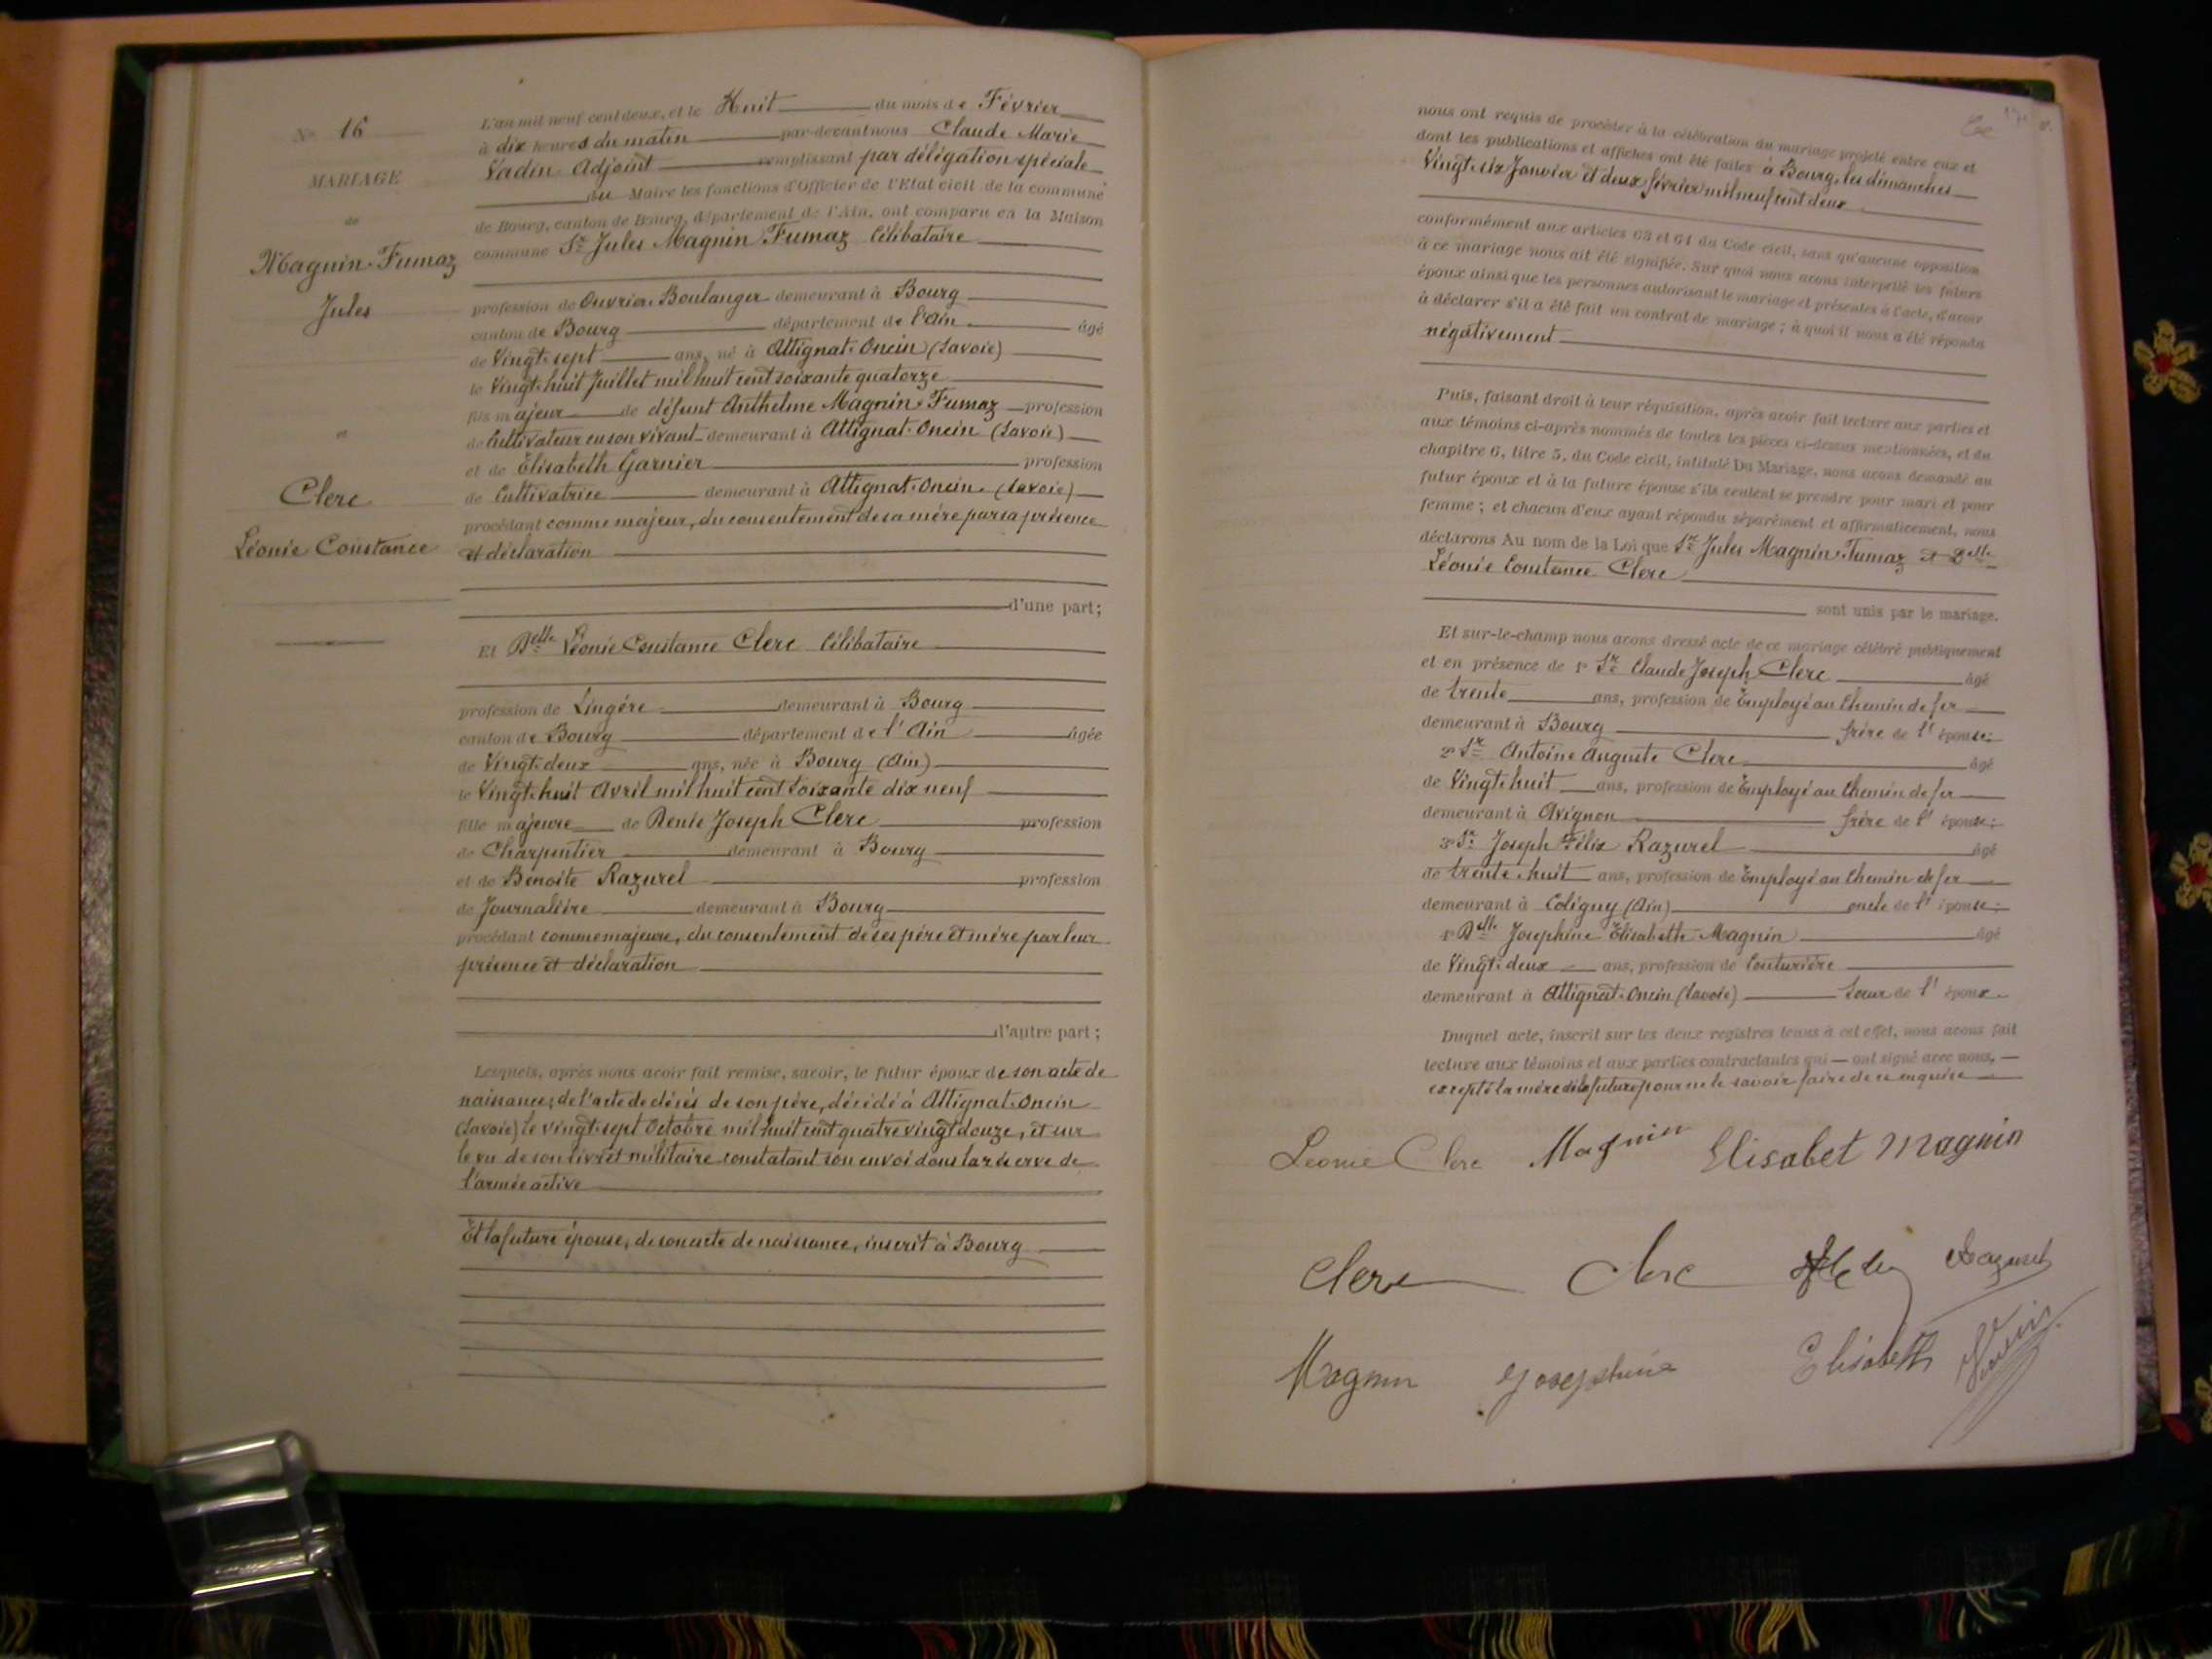 N° 16
MARIAGE
de
Magnin-Fumaz
Jules
et
Clerc
Léonie Constance
L'an mil neuf cent deux, et le Huit du mois de Février
à dix heures du matin par-devant nous Claude Marie
Vadin Adjoint remplissant par délégation spéciale
du Maire les fonctions d'Officier de l'Etat civil de la commune
de Bourg, canton de Bourg, département de l'Ain, ont comparu en la Maison
commune Sr Jules Magnin-Fumaz Célibataire
profession de Ouvrier Boulanger demeurant à Bourg
canton de Bourg département de l'Ain âgé
de Vingt-sept ans, né à Attignat-Oncin (Savoie)
le Vingt-huit Juillet mil huit cent soixante quatorze
fils majeur de défunt Anthelme Magnin-Fumaz profession
de Cultivateur en son vivant demeurant à Attignat-Oncin (Savoie)
et de Elisabeth Garnier profession
de Cultivatrice demeurant à Attignat-Oncin (Savoie)
procédant comme majeur, du consentement de sa mère par sa présence
et déclaration
d'une part;
Et Delle Léonie Constance Clerc Célibataire
profession de Lingère demeurant à Bourg
canton de Bourg département de l'Ain âgée
de Vingt-deux ans, née à Bourg (Ain)
le Vingt-huit Avril mil huit cent soixante dix neuf
fille majeure de Denis Joseph Clerc profession
de Charpentier demeurant à Bourg
et de Benoîte Razurel profession
de Journalière demeurant à Bourg
procédant comme majeure, du consentement de ses père et mère par leur
présence et déclaration
d'autre part;
Lesquels, après nous avoir fait remise, savoir, le futur époux de son acte de
naissance; de l'acte de décès de son père, décédé à Attignat-Oncin
(Savoie) le vingt-sept Octobre mil huit cent quatre vingt douze, et sur
le vu de son livret militaire constatant son envoi dans la réserve de
l'armée active
Et la future épouse, de son acte de naissance, inscrit à Bourg
nous ont requis de procéder à la célébration du mariage projeté entre eux et
dont les publications et affiches ont été faites à Bourg, les dimanches
Vingt-six Janvier et deux février mil neuf cent deux
conformément aux articles 63 et 64 du Code civil, sans qu'aucune opposition
à ce mariage nous ait été signifiée. Sur quoi nous avons interpellé les futurs
époux ainsi que les personnes autorisant le mariage et présentes à l'acte, d'avoir
à déclarer s'il a été fait un contrat de mariage; à quoi il nous a été répondu
négativement
Puis, faisant droit à leur réquisition, après avoir fait lecture aux parties et
aux témoins ci-après nommés de toutes les pièces ci-dessus mentionnées, et du
chapitre 6, titre 5, du Code civil, intitulé Du Mariage, nous avons demandé au
futur époux et à la future épouse s'ils veulent se prendre pour mari et pour
femme; et chacun d'eux ayant répondu séparément et affirmativement, nous
déclarons Au nom de la Loi que Sr Jules Magnin-Fumaz et Delle
Léonie Constance Clerc
sont unis par le mariage.
Et sur-le-champ nous avons dressé acte de ce mariage célébré publiquement
et en présence de 1° Sr Claude Joseph Clerc âgé
de trente ans, profession de Employé au Chemin de fer
demeurant à Bourg frère de l'épouse;
2° Sr Antoine Auguste Clerc âgé
de Vingt-huit ans, profession de Employé au Chemin de fer
demeurant à Avignon frère de l'épouse;
3° Sr Joseph Félix Razurel âgé
de trente-huit ans, profession de Employé au Chemin de fer
demeurant à Coligny (Ain) oncle de l'épouse;
4° Delle Josephine Elisabeth Magnin âgé
de Vingt-deux ans, profession de Couturière
demeurant à Attignat-Oncin (Savoie) Sœur de l'époux
Duquel acte, inscrit sur les deux registres tenus à cet effet, nous avons fait
lecture aux témoins et aux parties contractantes qui ont signé avec nous,
excepté la mère de la future pour ne le savoir faire de ce enquise
Léonie Clerc Magnin Elisabet Magnin
Clerc Clerc Razurel
Magnin Josephine Elisabeth Vadin